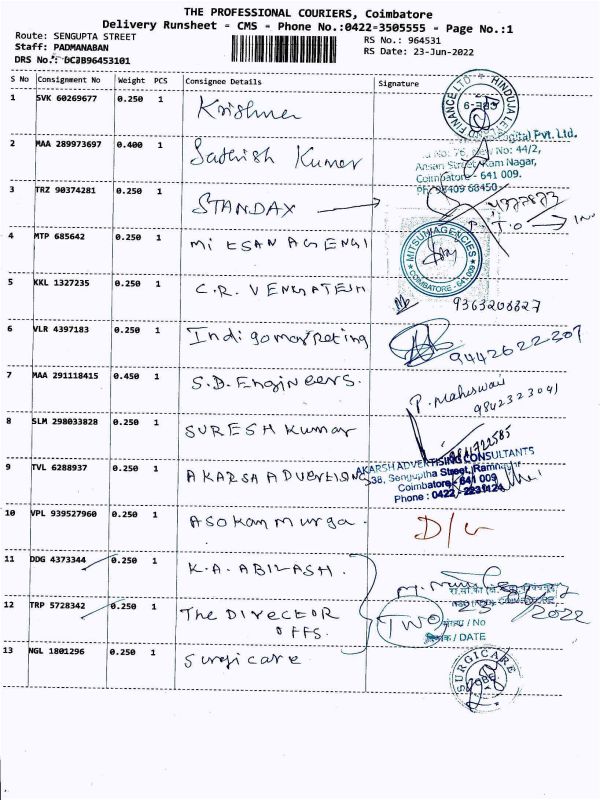 THE PROFESSIONAL COURIERS, Coimbatore
Delivery Runsheet - CMS - Phone No.:0422-3505555 - Page No.:1
Route: SENGUPTA STREET
RS No.: 964531
Staff: PADMANABAN
RS Date: 23-Jun-2022
DRS No.: DCJB96453101
S No Consignment No Weight PCS Consignee Details Signature
1 SVK 60269677 0.250 1 Krishna
HINDUJA FINANCE LTD
2 MAA 289973697 0.400 1 Sathish Kumar
Digital Pvt. Ltd.
No: 44/2,
Ansari Street, Ram Nagar,
Coimbatore - 641 009.
Ph: 98409 68450
3 TRZ 90374281 0.250 1 STANDAX
4 MTP 685642 0.250 1 MITSAN AGENCI
MITSUMI AGENCIES
COIMBATORE - 641 009
5 KKL 1327235 0.250 1 C.R. VENKATESH
9363208827
6 VLR 4397183 0.250 1 Indigomarketing
9442622307
7 MAA 291118415 0.450 1 S.D. Engineers.
P. Maheswari
9842323041
8 SLM 298033828 0.250 1 SURESH Kumar
9 TVL 6288937 0.250 1 AKARSA ADVERTISING
AKARSH ADVERTISING CONSULTANTS
38, Senguptha Street, Ramnagar
Coimbatore - 641 009
Phone : 0422 - 2231124
10 VPL 939527960 0.250 1 Asokan Murga.
D/L
11 DDG 4373344 0.250 1 K.A. ABILASH.
12 TRP 5728342 0.250 1 The DIRECTOR
OFFS.
2022
TWO
संख्या / No
दिनांक / DATE
13 NGL 1801296 0.250 1 Surgicare
SURGICARE